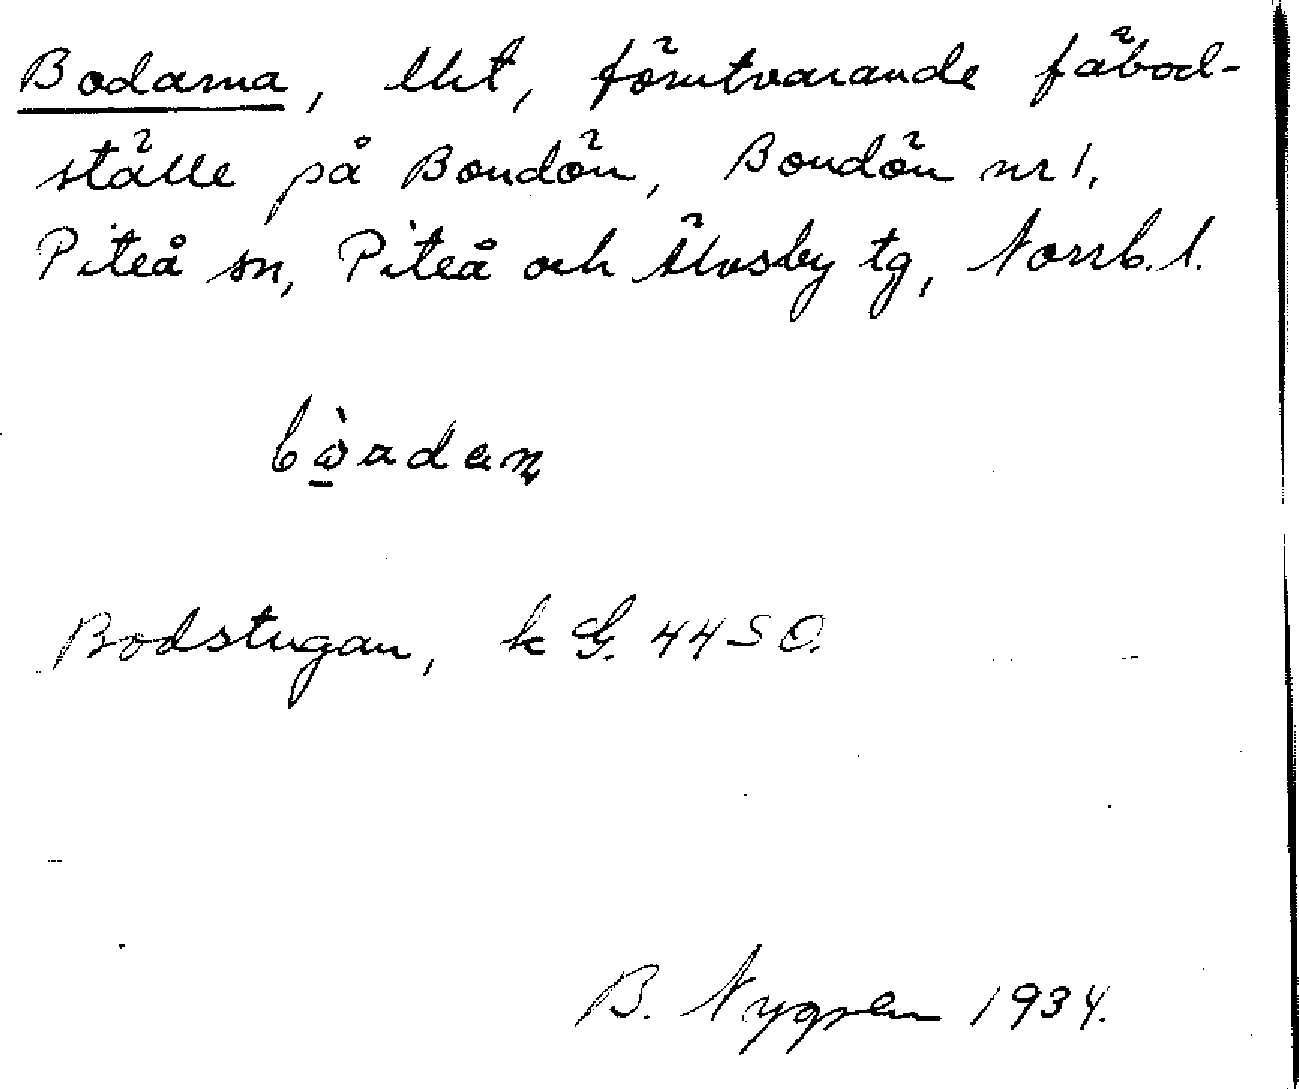 Bodarna, lht, förutvarande fäbod-
ställe på Bondön, Bondön nr 1,
Piteå sn, Piteå och Älvsby tg, Norrb. l.
Bodstugan, k G. 44 S O.
B. Nygren 1934.